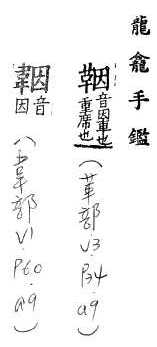 龍龕手鑑
鞇 音因車也重席也 (革部 V3. P34. a9)
音因 (韋部 V1. P60. a9)